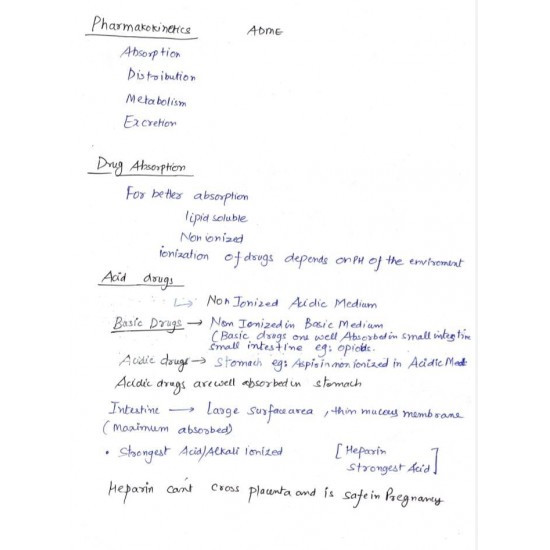 Pharmakokinetics ADME
Absorption
Distribution
Metabolism
Excretion
Drug Absorption
For better absorption
lipid soluble
Non ionized
ionization of drugs depends on PH of the enviroment
Acid drugs
↳ Non Ionized Acidic Medium
Basic Drugs → Non Ionized in Basic Medium
(Basic drugs are well Absorbed in small intestine
small intestine eg: opioids.
Acidic drugs → Stomach eg: Aspirin non ionized in Acidic Med
Acidic drugs are well absorbed in stomach
Intestine → Large surface area, thin mucous membrane
(Maximum absorbed)
• Strongest Acid/Alkali ionized [Heparin
Strongest Acid]
Heparin cant cross placenta and is safe in Pregnancy